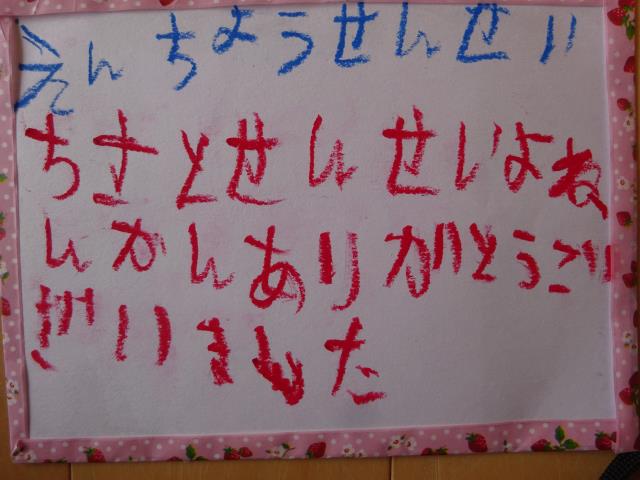 えんちょうせんせい
ちさとせんせいよね
んかんありがとうご
ざいました